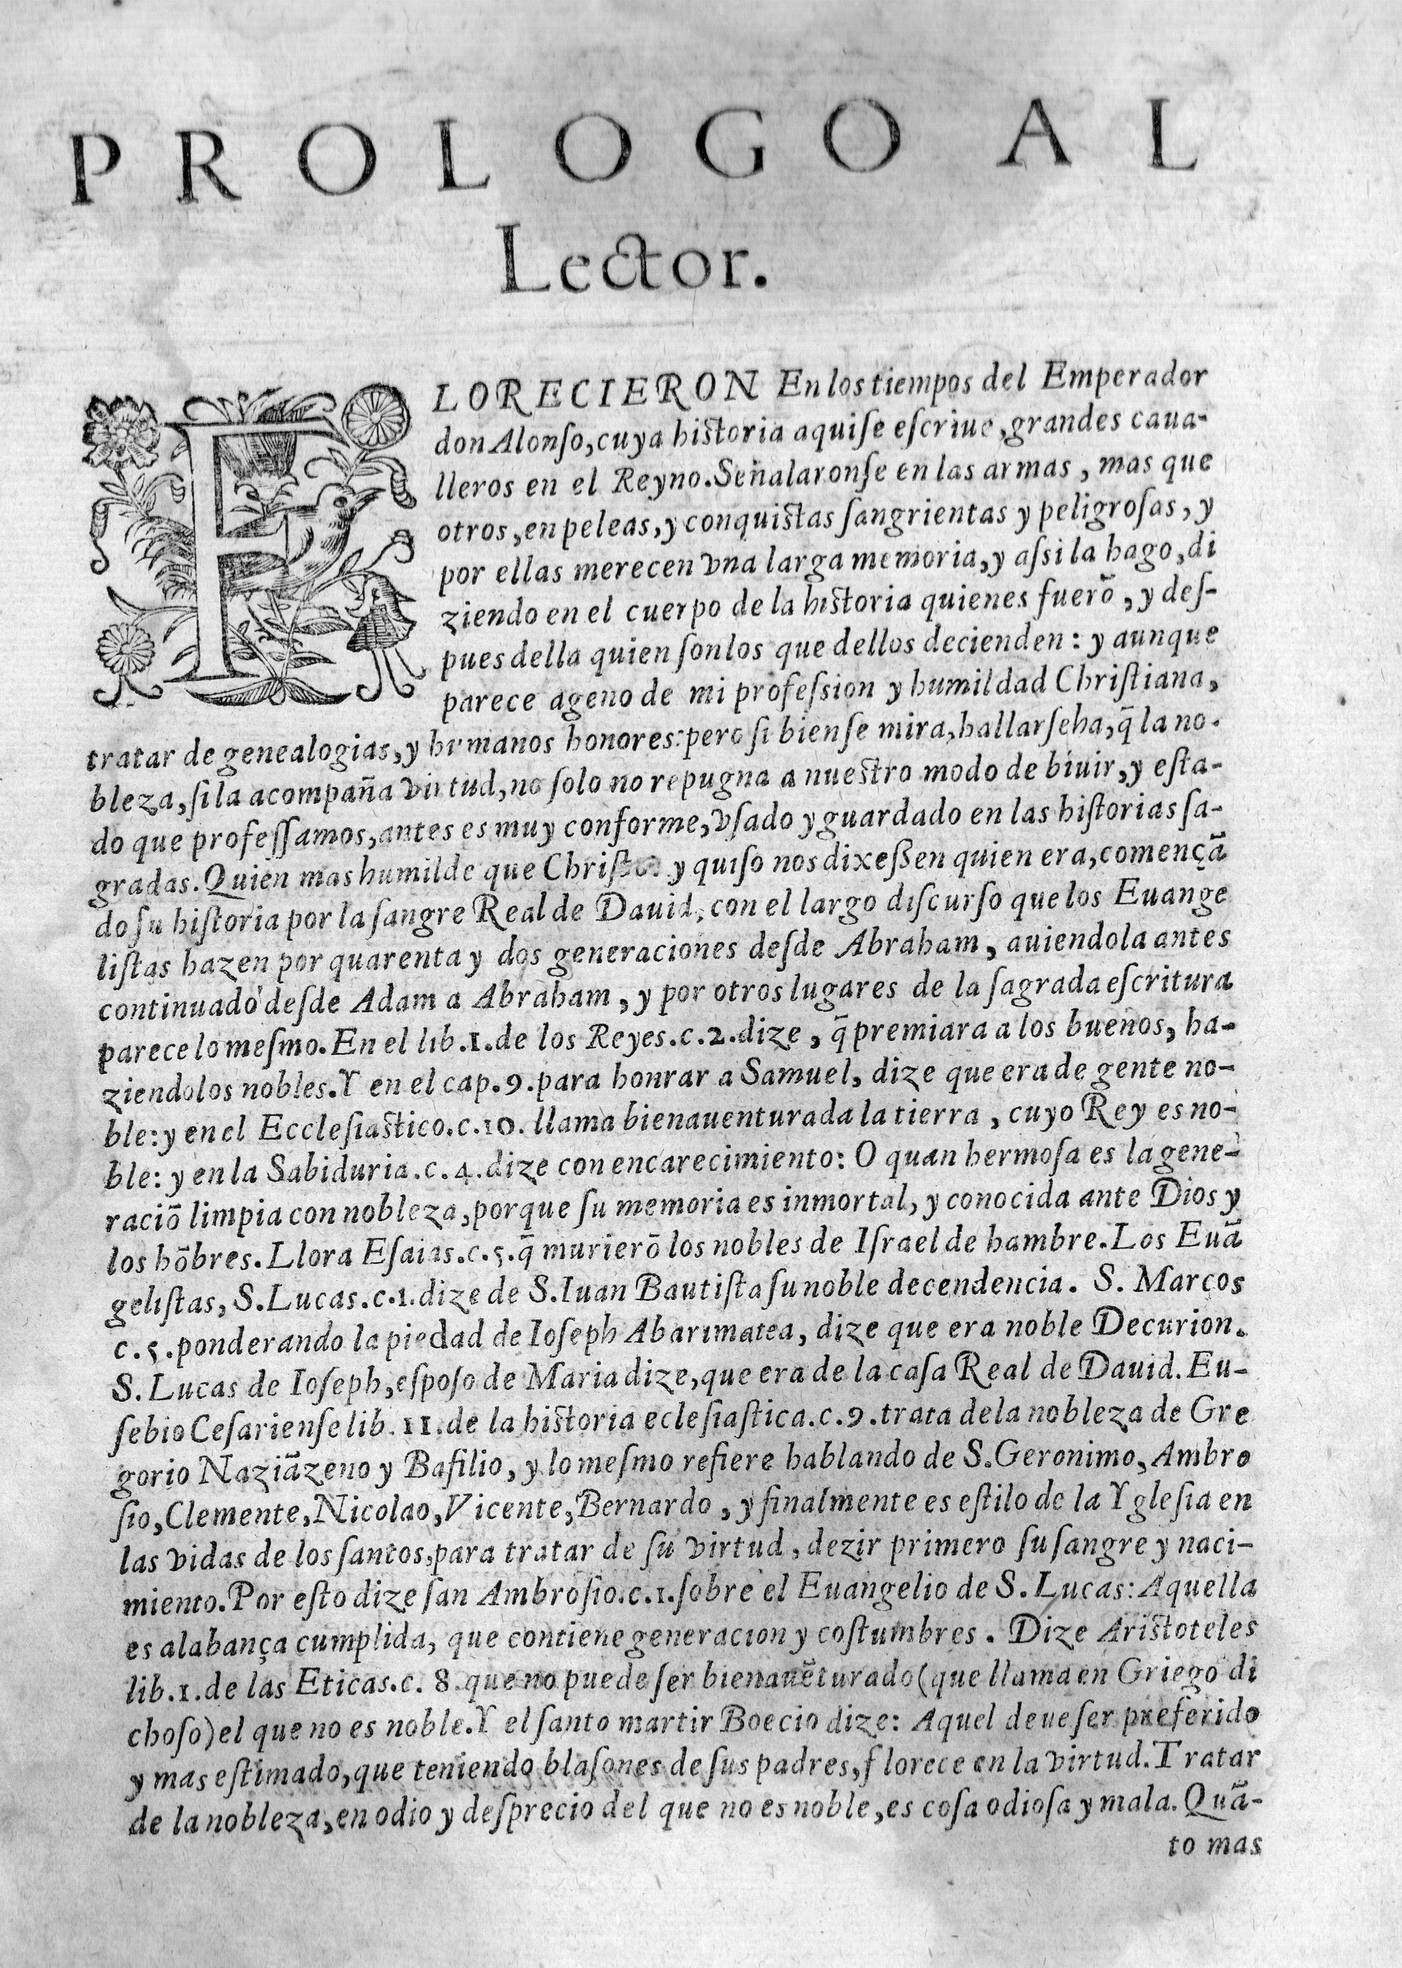 PROLOGO AL
Lector.
FLORECIERON En los tiempos del Emperador
don Alonso, cuya historia aqui se escriue, grandes caua-
lleros en el Reyno. Señalaronse en las armas, mas que
otros, en peleas, y conquistas sangrientas y peligrosas, y
por ellas merecen vna larga memoria, y assi la hago, di
ziendo en el cuerpo de la historia quienes fuerō, y des-
pues della quien son los que dellos decienden: y aunque
parece ageno de mi profession y humildad Christiana,
tratar de genealogias, y humanos honores: pero si bien se mira, hallarseha, q̃ la no-
bleza, si la acompaña virtud, no solo no repugna a nuestro modo de biuir, y esta-
do que professamos, antes es muy conforme, vsado y guardado en las historias sa-
gradas. Quien mas humilde que Christo? y quiso nos dixessen quien era, començā
do su historia por la sangre Real de Dauid, con el largo discurso que los Euange
listas hazen por quarenta y dos generaciones desde Abraham, auiendola antes
continuado desde Adam a Abraham, y por otros lugares de la sagrada escritura
parece lo mesmo. En el lib. 1. de los Reyes. c. 2. dize, q̃ premiara a los buenos, ha-
ziendolos nobles. Y en el cap. 9. para honrar a Samuel, dize que era de gente no-
ble: y en el Ecclesiastico. c. 10. llama bienauenturada la tierra, cuyo Rey es no-
ble: y en la Sabiduria. c. 4. dize con encarecimiento: O quan hermosa es la gene-
raciō limpia con nobleza, porque su memoria es inmortal, y conocida ante Dios y
los hōbres. Llora Esaias. c. 5. q̃ murierō los nobles de Israel de hambre. Los Euā
gelistas, S. Lucas. c. 1. dize de S. Iuan Bautista su noble decendencia. S. Marcos
c. 5. ponderando la piedad de Ioseph Abarimatea, dize que era noble Decurion.
S. Lucas de Ioseph, esposo de Maria dize, que era de la casa Real de Dauid. Eu-
sebio Cesariense lib. 11. de la historia eclesiastica. c. 9. trata de la nobleza de Gre
gorio Naziāzeno y Basilio, y lo mesmo refiere hablando de S. Geronimo, Ambro
sio, Clemente, Nicolao, Vicente, Bernardo, y finalmente es estilo de la Yglesia en
las vidas de los santos, para tratar de su virtud, dezir primero su sangre y naci-
miento. Por esto dize san Ambrosio. c. 1. sobre el Euangelio de S. Lucas: Aquella
es alabança cumplida, que contiene generacion y costumbres. Dize Aristoteles
lib. 1. de las Eticas. c. 8. que no puede ser bienauēturado (que llama en Griego di
choso) el que no es noble. Y el santo martir Boecio dize: Aquel deue ser preferido
y mas estimado, que teniendo blasones de sus padres, florece en la virtud. Tratar
de la nobleza, en odio y desprecio del que no es noble, es cosa odiosa y mala. Quā-
to mas